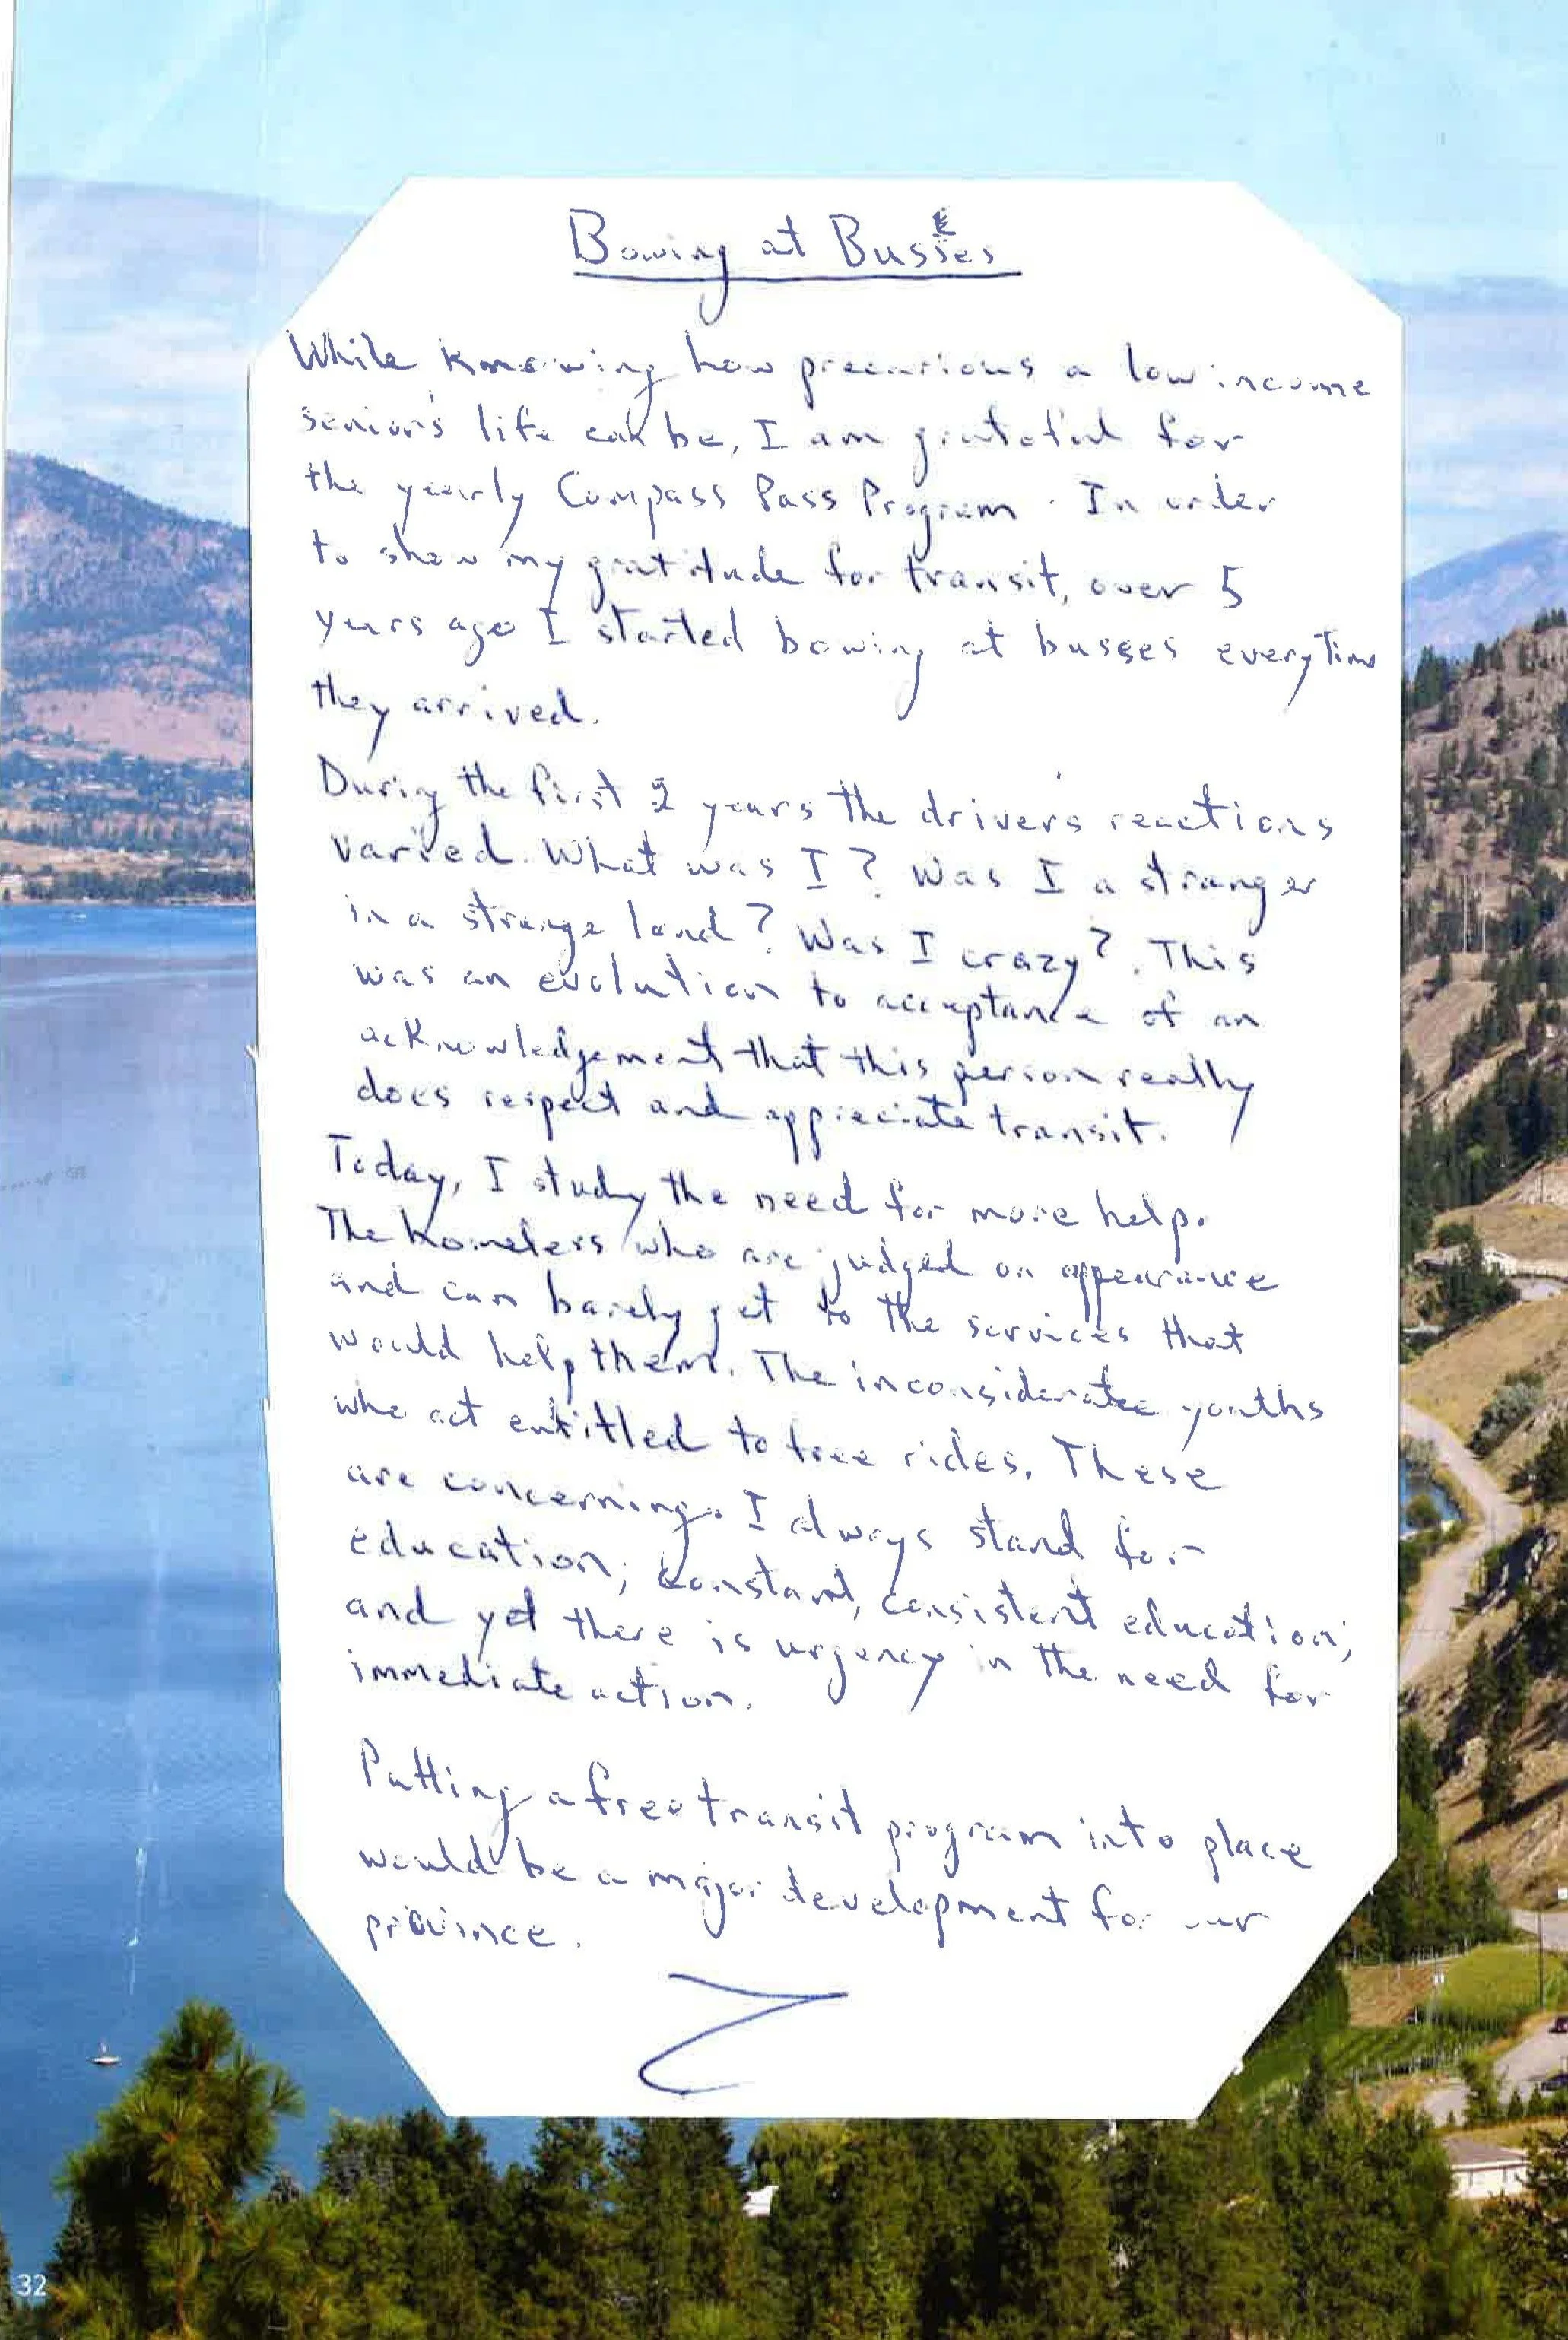 Bowing at Busses
While Knowing how precarious a low income
senior's life can be, I am grateful for
the yearly Compass Pass Program. In order
to show my gratitude for transit, over 5
years ago I started bowing at busses everytime
they arrived.
During the first 2 years the driver's reactions
varied. What was I? Was I a stranger
in a strange land? Was I crazy?. This
was an evolution to acceptance of an
acknowledgement that this person really
does respect and appreciate transit.
Today, I study the need for more help.
The homeless who are judged on appearance
and can barely get to the services that
would help them. The inconsiderate youths
who act entitled to free rides. These
are concerning. I always stand for
education; constant, consistent education;
and yet there is urgency in the need for
immediate action.
Putting a free transit program into place
would be a major development for our
province.
32